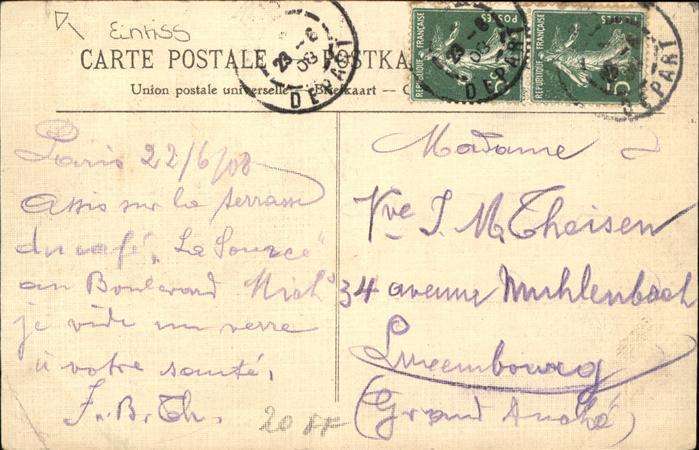 Eintiss
CARTE POSTALE POSTKA
Union postale universelle — Briefkaart — C
RÉPUBLIQUE FRANÇAISE
POSTES
5
RÉPUBLIQUE FRANÇAISE
5
23 - 6
08
DEPART
23 - 6
08
DEPART
DEPART
Paris 22/6/08
Assis sur la terrasse
du café „La Source"
au Boulevard Mich
je vide un verre
à votre santé.
J. B. Th.
20 FF
Madame
Vve J. M. Theisen
34 avenue Muhlenbach
Luxembourg
(Grand Duché)